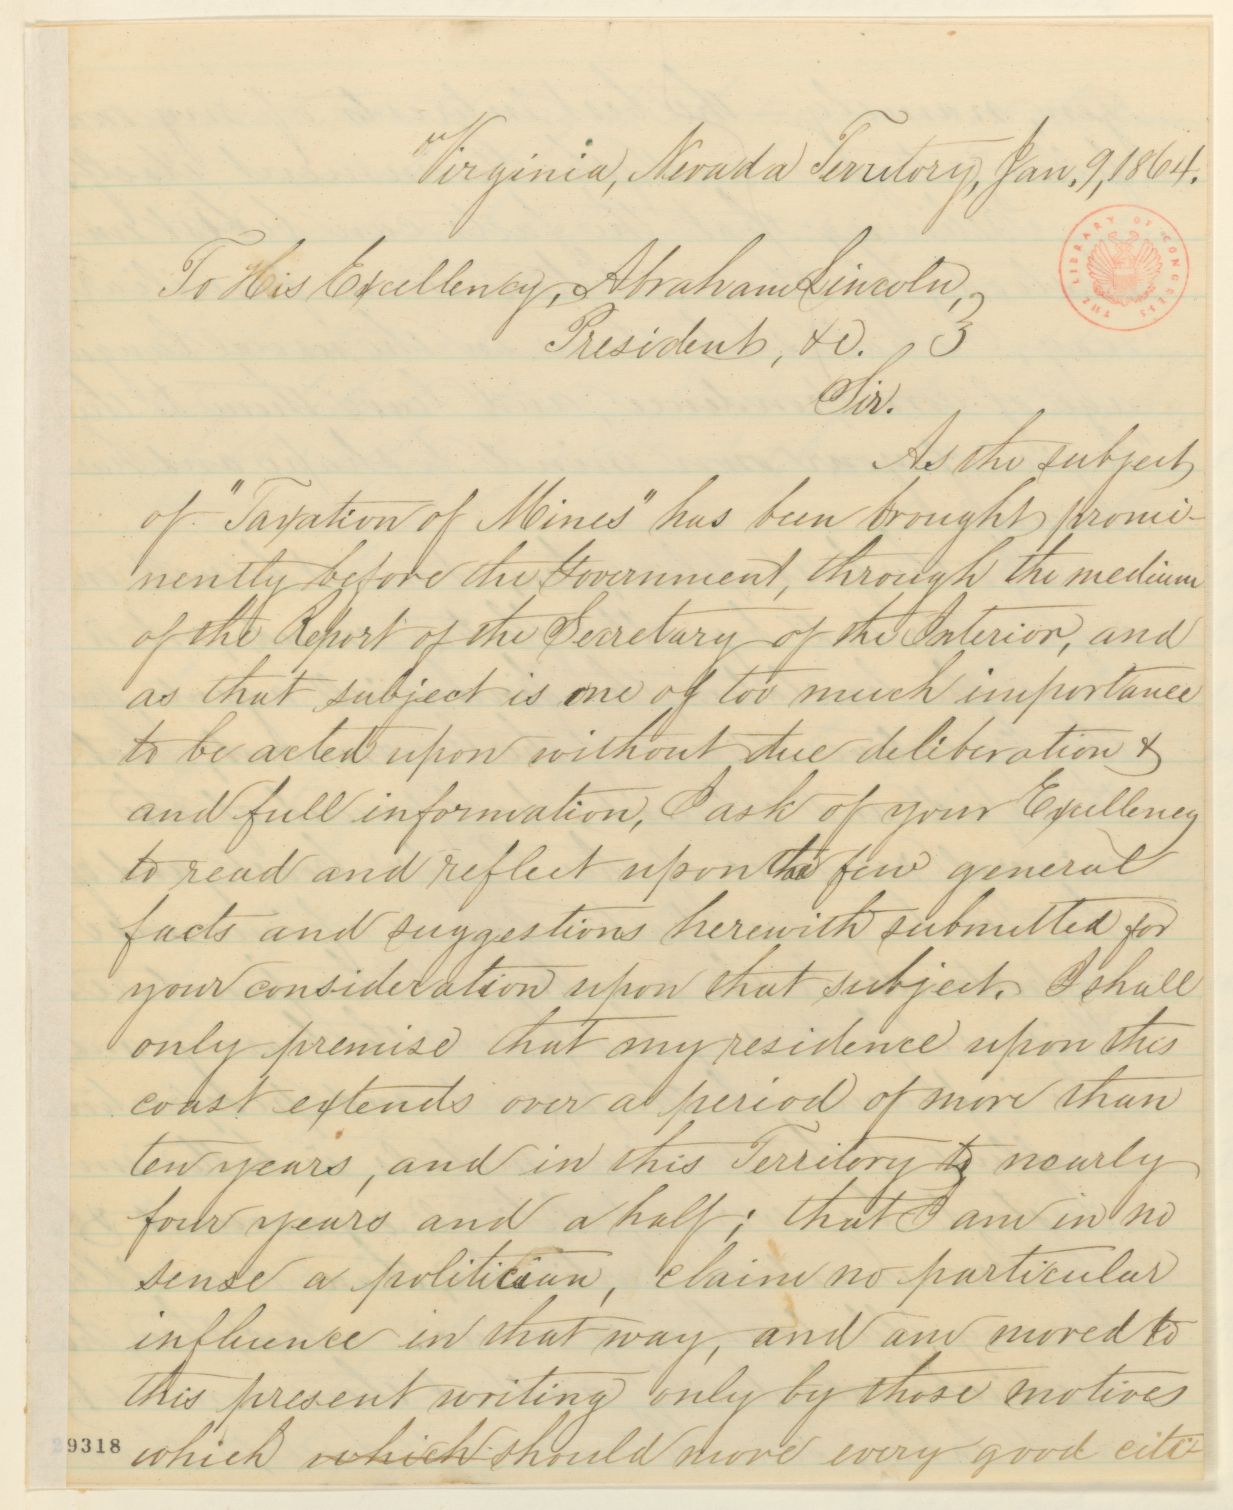 Virginia, Nevada Territory, Jan. 9, 1864.
THE LIBRARY OF CONGRESS
To His Excellency, Abraham Lincoln,
President, &c.
Sir.
As the subject
of "Taxation of Mines" has been brought promi-
nently before the Government, through the medium
of the Report of the Secretary of the Interior, and
as that subject is one of too much importance
to be acted upon without due deliberation &
and full information, I ask of your Excellency
to read and reflect upon the few general
facts and suggestions herewith submitted for
your consideration upon that subject. I shall
only premise that my residence upon this
coast extends over a period of more than
ten years, and in this Territory to nearly
four years and a half; that I am in no
sense a politician, claim no particular
influence in that way, and am moved to
this present writing only by those motives
which which should move every good citi-
29318